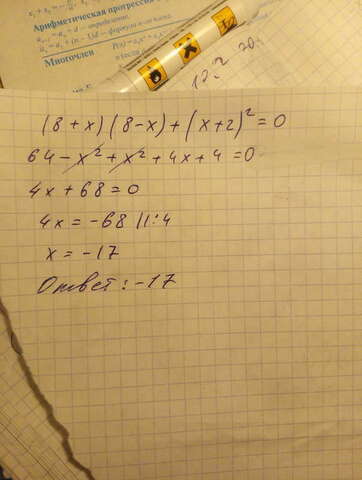 Арифметическая прогрессия
Многочлен
(8+x)(8-x)+(x+2)²=0
64-x²+x²+4x+4=0
4x+68=0
4x=-68 |1:4
x=-17
Ответ:-17